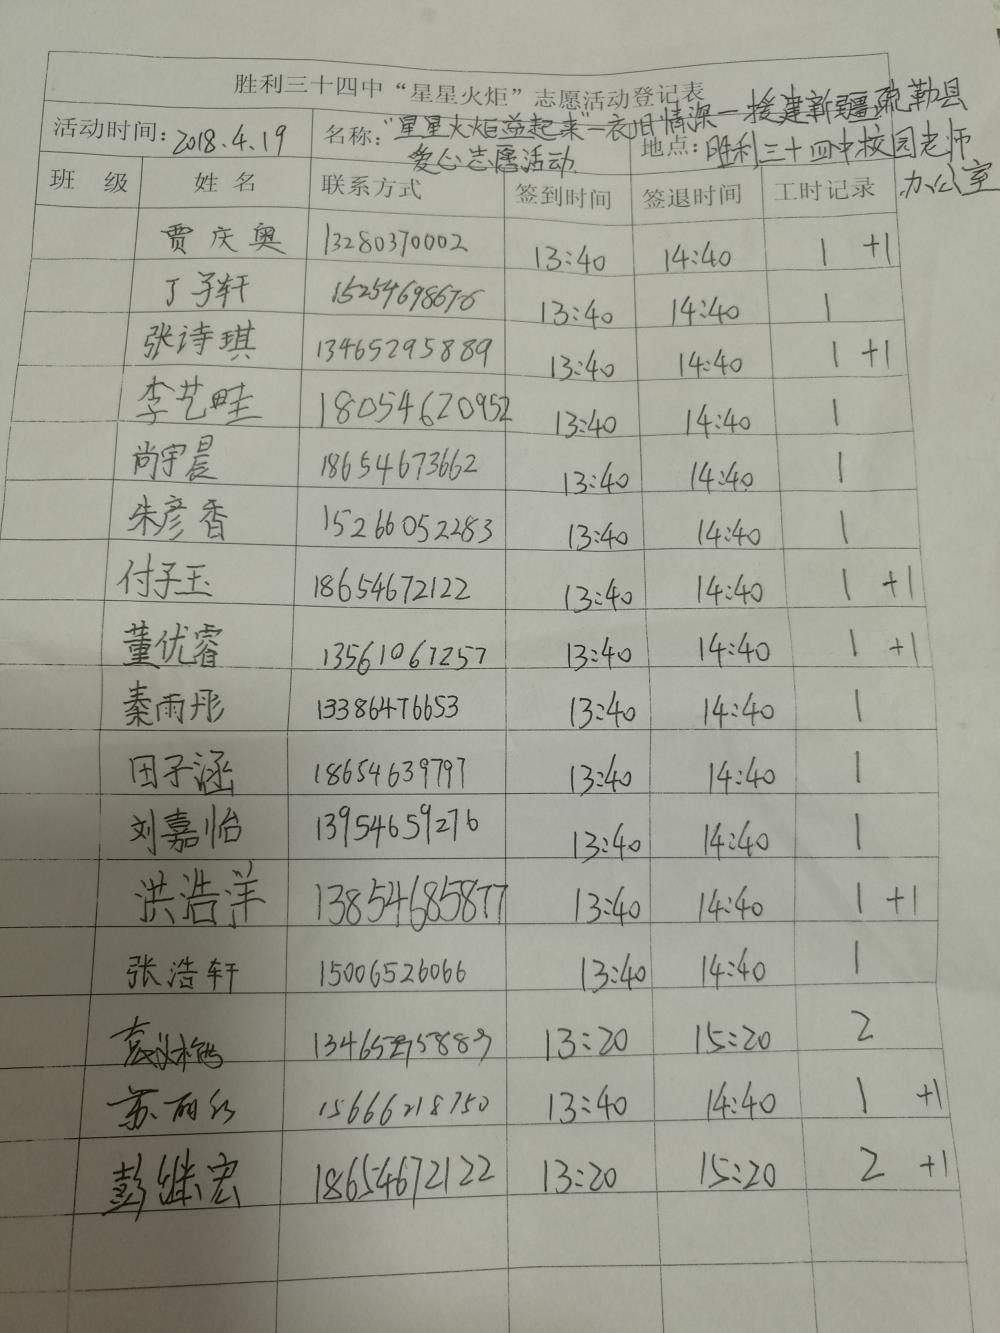 胜利三十四中“星星火炬”志愿活动登记表
活动时间：2018.4.19 名称：“星星火炬益起来”一衣旧情深一援建新疆疏勒县
爱心志愿活动 地点：胜利三十四中校园老师
办公室
班 级 姓 名 联系方式 签到时间 签退时间 工时记录
贾庆奥 13280370002 13:40 14:40 1 +1
丁子轩 15254698676 13:40 14:40 1
张诗琪 13465295889 13:40 14:40 1 +1
李艺畦 18054620952 13:40 14:40 1
尚宇晨 18654673662 13:40 14:40 1
朱彦香 15266052283 13:40 14:40 1
付子玉 18654672122 13:40 14:40 1 +1
董优睿 13561067257 13:40 14:40 1 +1
秦雨彤 13386476653 13:40 14:40 1
田子涵 18654639797 13:40 14:40 1
刘嘉怡 13954659276 13:40 14:40 1
洪浩洋 13854685877 13:40 14:40 1 +1
张浩轩 15006526066 13:40 14:40 1
13:20 15:20 2
苏丽红 15666218750 13:40 14:40 1 +1
彭继宏 18654672122 13:20 15:20 2 +1